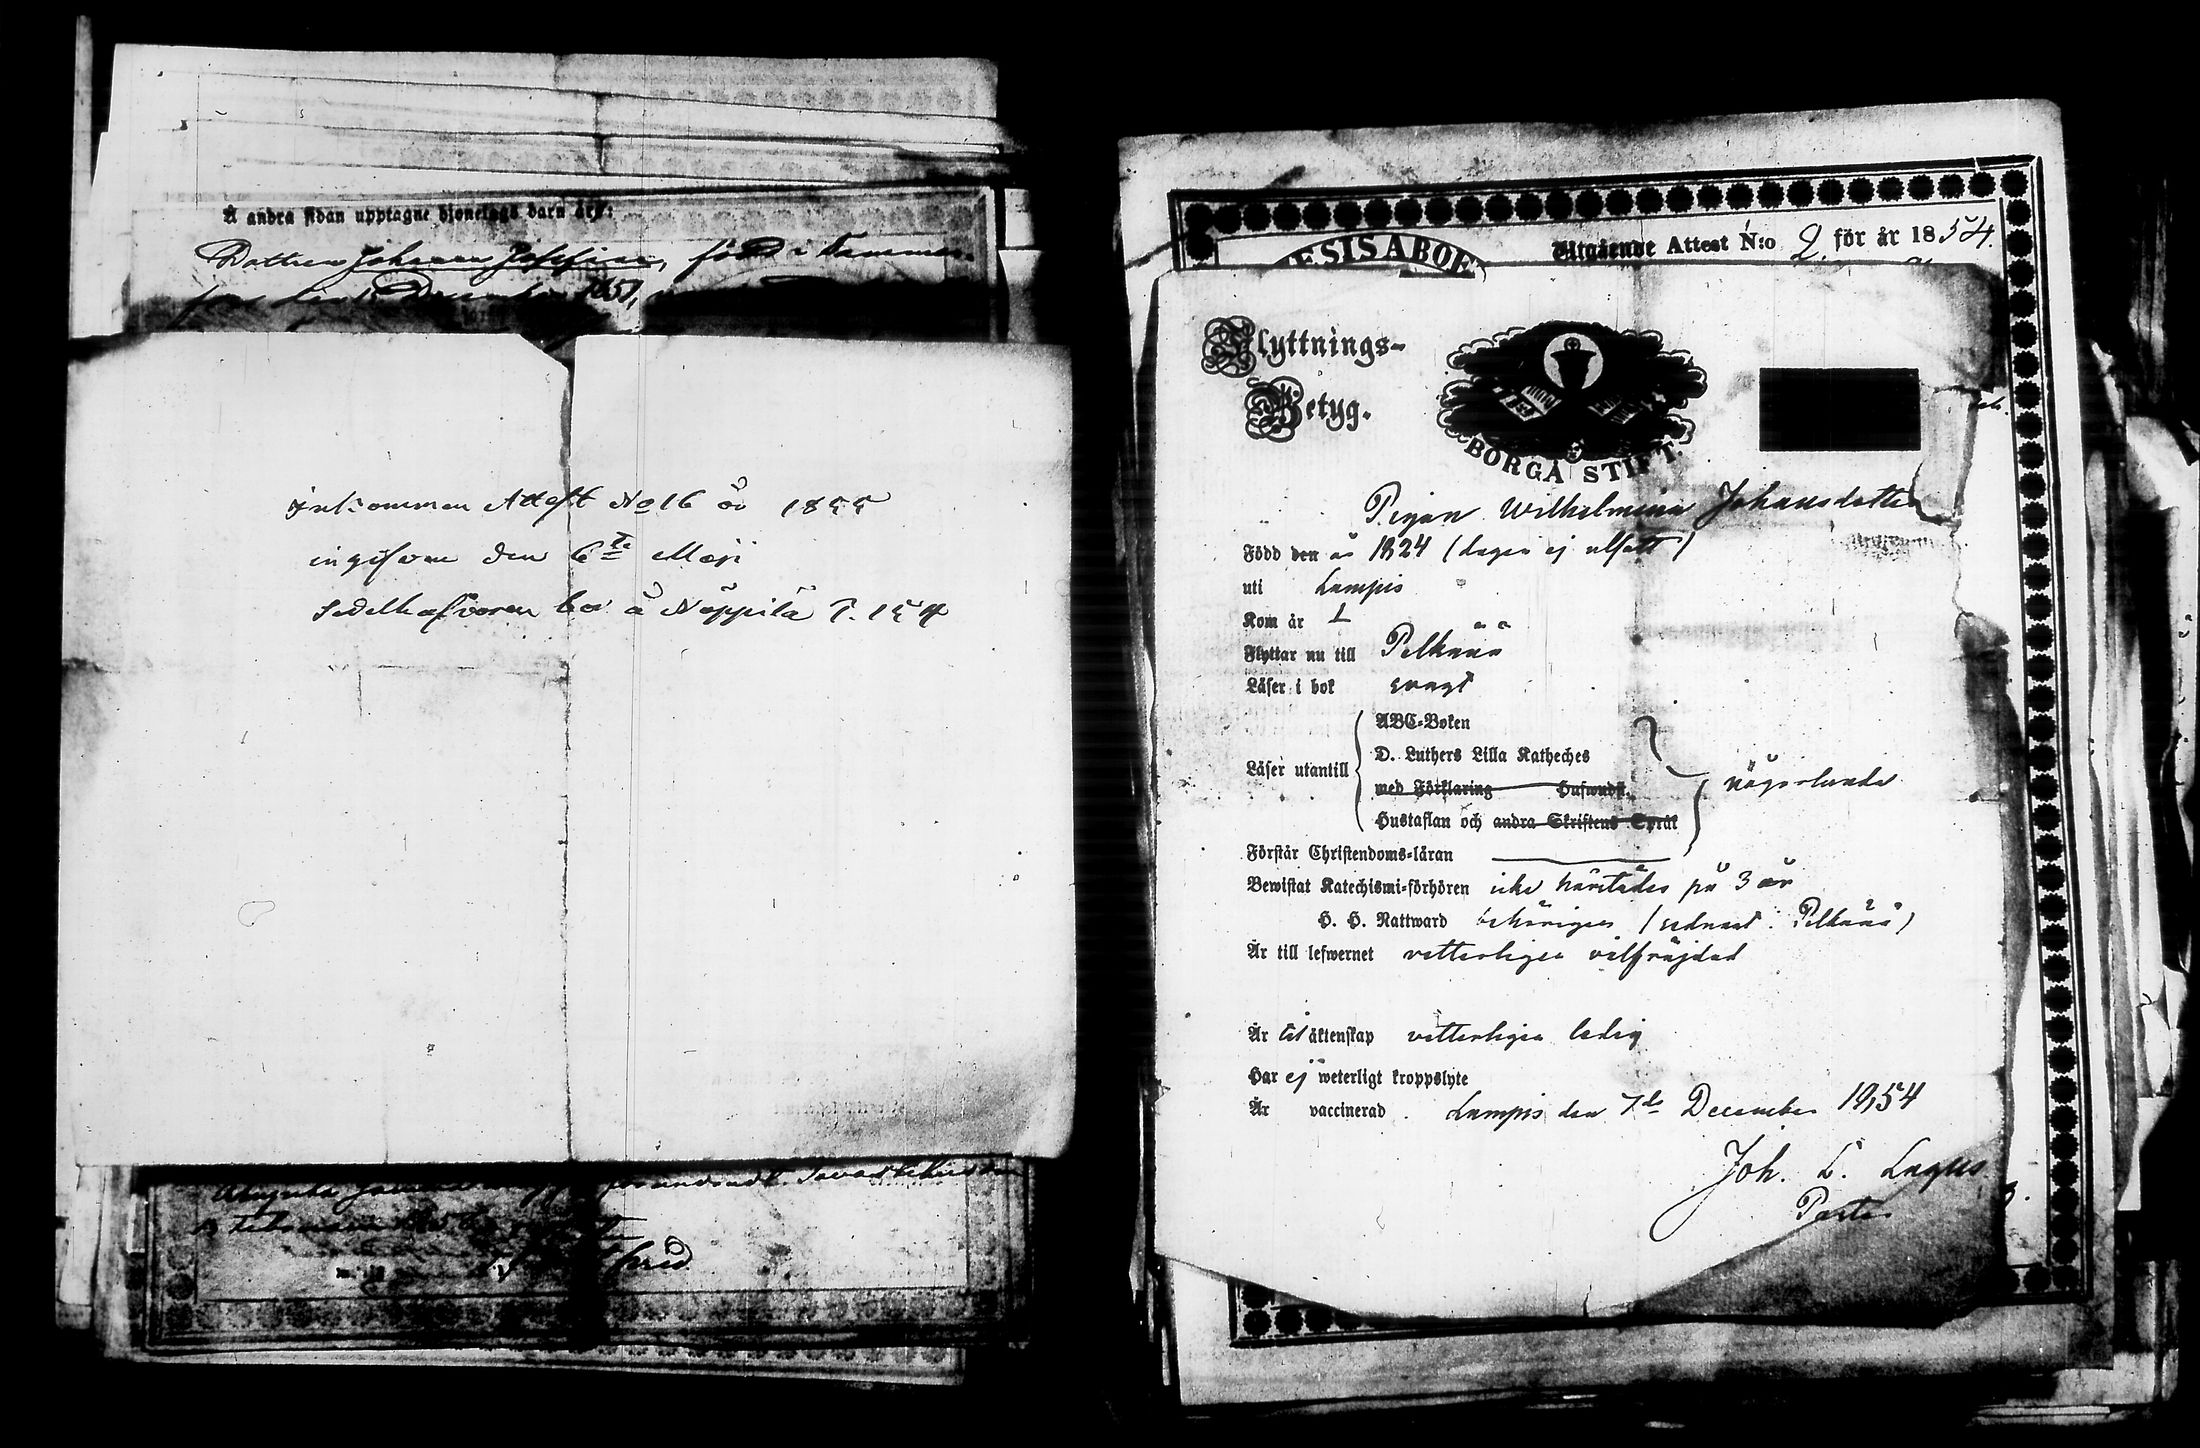 Å andra sidan upptagne hjonelags barn äro:
Dottren Johanna Josefina, född i Tammer-
fors den 1 December 1851,
Inkommen Attest No 16 år 1855
ingifven den 6te Maji
Sedelhafvaren bor å Näppilä P. 154
Utgående Attest N:o 2 för år 1854.
Flyttnings-
Betyg.
BORGÅ STIFT.
Pigan Wilhelmina Johansdotter
Född den år 1824 (dagen ej utsatt)
uti Lampis
Kom år L
Flyttar nu till Pelkäne
Läser i bok svagt
ABC-Boken
D. Luthers Lilla Katheches
Läser utantill
med Förklaring Hufwudst. någorlunda
Hustaflan och andra Skriftens Språk
Förstår Christendoms-läran
Bewistat Katechismi-förhören icke härstädes på 3 år
H. H. Nattward behörigen (sednast i Pelkäne)
Är till lefwernet vetterligen välfräjdad
Är till äktenskap vetterligen ledig
Har ej weterligt kroppslyte
Är vaccinerad. Lampis den 7de December 1854
Joh. L. Lagus.
Pastor